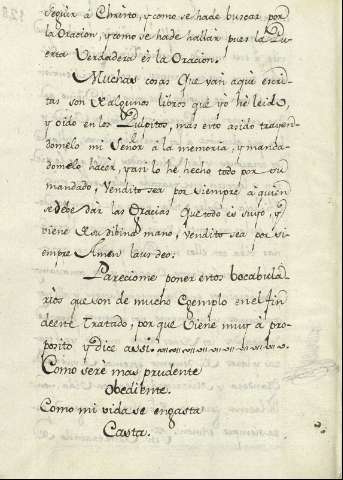 seguir â Christo, y como se hade buscar por
la Oracion, y como se hade hallar pues la Pu-
erta Verdadera es la Oracion.
Muchas cosas que van aqui escri-
tas son de algunos libros que yò he leido,
y oido en los Pulpitos, mas esto asido trayen-
domelo mi Señor à la memoria, y manda-
domelo hacer, y an lo he hecho todo por su
mandado, Vendito sea por siempre à quien
se debe dar las Gracias que todo es suyo, y
viene de su dibina mano, vendito sea por si-
empre Amen laus deo.
Pareciome poner estos bocabula-
rios que son de mucho Egemplo en el fin
de este Tratado, por que viene muy à pro-
posito y dice assi.
Como sere mas prudente
Obediente.
Como mi vida se engasta
Casta.